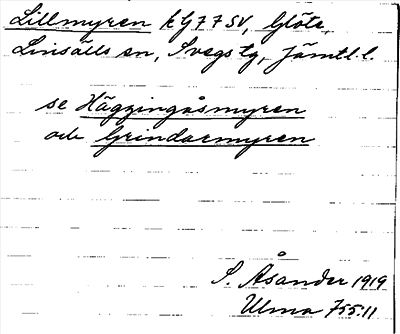 Lillmyren kG77SV, Glöte,
Linsälls sn, Svegs tg, Jämtl. l.
se Häggingåsmyren
och Grindarmyren
S. Åsander 1919
Ulma 755:11